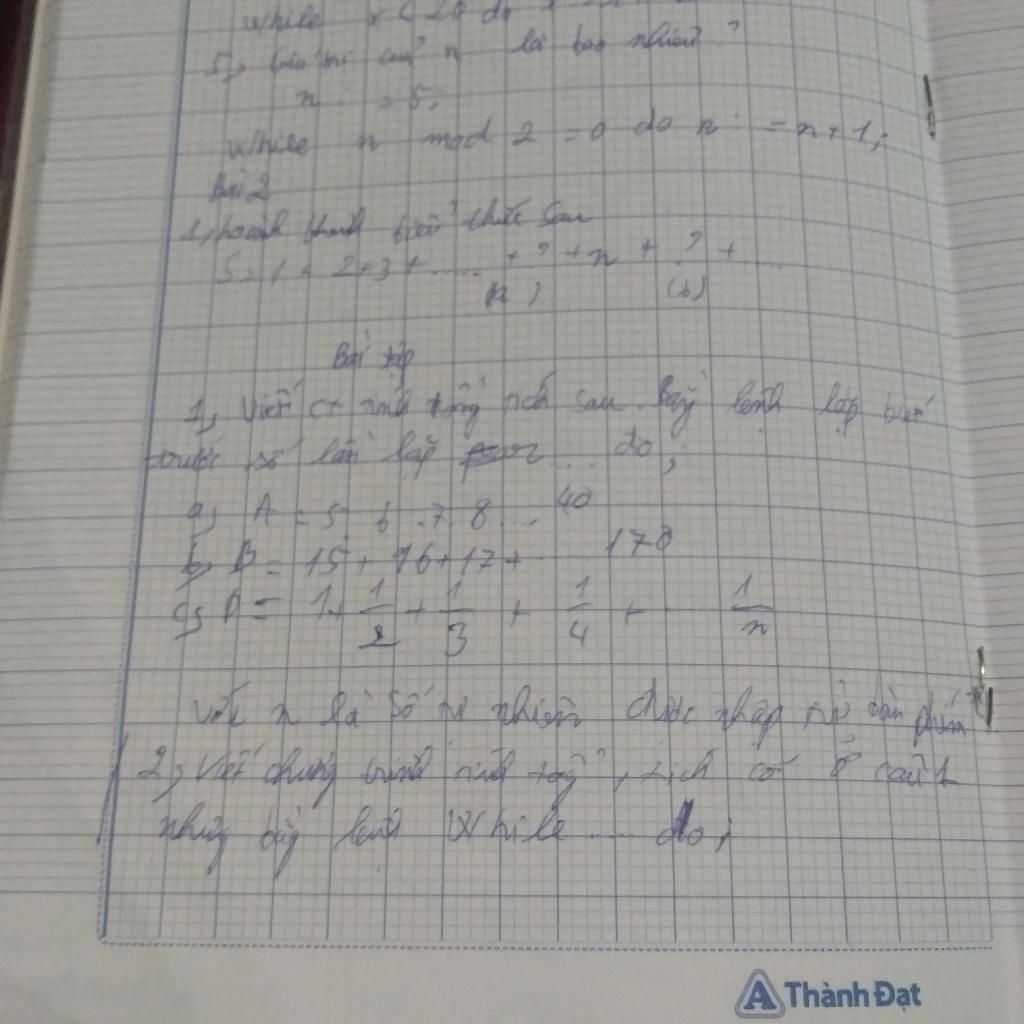 while x < 20 do
5, Giá trị của n là bao nhiêu?
n := 5;
while n mod 2 = 0 do n := n + 1;
Bài 2
1, hoành thành biểu thức sau
S = 1 + 2 + 3 + ..... + ? + n + ? + ....
(b)
Bài tập
1, Viết ct tính tổng tích sau bằg lệnh lặp biết
trước số lần lặp ... do;
a, A = 5 . 6 . 7 . 8 ... 40
b, B = 15 + 16 + 17 + ... 178
c, D = 1 + 1/2 + 1/3 + 1/4 + ... 1/n
với n là số tự nhiên được nhập từ bàn phím
2, Viết chương trình tính tổng, tích có ở câu 1
nhưng bằg lệnh While ... do;
A Thành Đạt